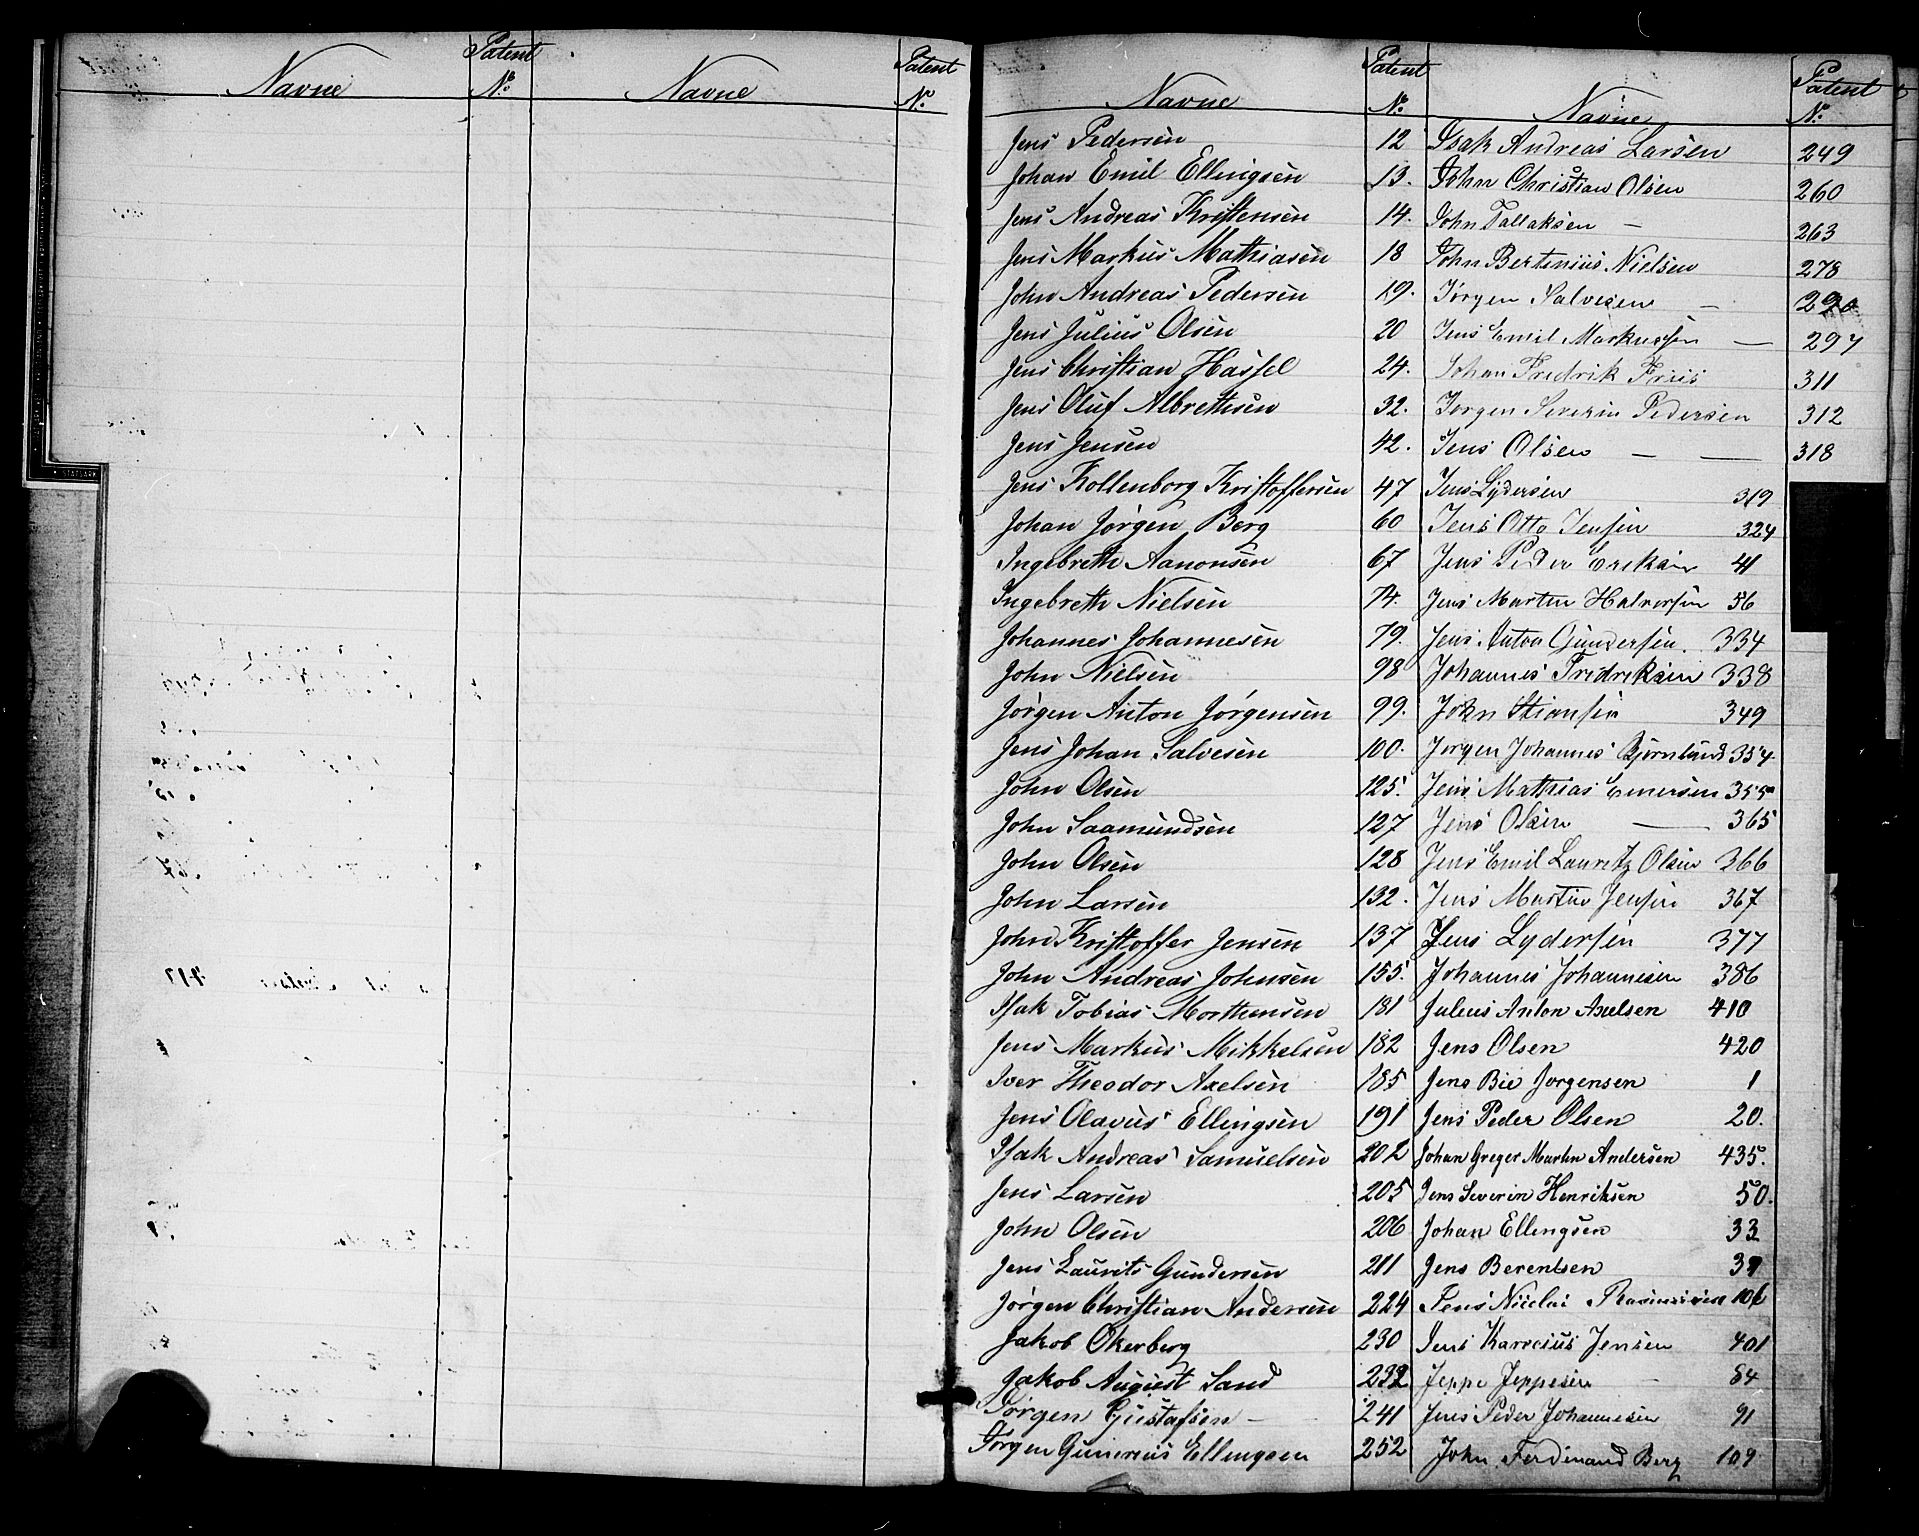 Navne Patent No. Navne Patent No.
Navne Patent No. Navne Patent No.
Jens Pedersen 12
Johan Emil Ellingsen 13.
Jens Andreas Kristensen 14.
Jens Markus Mathiasen 18
John Andreas Pedersen 19.
Jens Julius Olsen 20
Jens Christian Hassel 24.
Jens Oluf Albrethsen 32.
Jens Jensen 42.
Jens Kollenborg Kristoffersen 47
Johan Jørgen Berg 60
Ingebreth Aanonsen 67
Ingebreth Nielsen 74.
Johannes Johannesen 79.
John Nielsen 98
Jørgen Anton Jørgensen 99.
Jens Johan Salvesen 100.
John Olsen 125.
John Saamundsen 127
John Olsen 128
John Larsen 132.
John Kristoffer Jensen 137
John Andreas Johnsen 155.
Isak Tobias Morthensen 181
Jens Markus Mikkelsen 182
Iver Theodor Axelsen 185
Jens Olavus Ellingsen 191
Isak Andreas Samuelsen 202
Jens Larsen 205
John Olsen 206
Jens Laurits Gundersen 211
Jørgen Christian Andersen 224
Jakob Okerberg 230
Jakob August Sand 232
Jørgen Gustafsen - 241
Jørgen Gunerius Ellingsen 252
Isak Andreas Larsen 249
John Christian Olsen 260
John Tallaksen - 263
John Bertinius Nielsen 278
Jørgen Salvesen - 290
Jens Emil Markussen - 297
Johan Fredrik Friis 311
Jørgen Severin Pedersen 312
Jens Olsen - - 318
Jens Lydersen 319
Jens Otto Jensen 324
Jens Peder Eriksen 41
Jens Martin Halvorsen 56
Jens Anton Gundersen. 334
Johannes Fredriksen 338
John Stiansen 349
Jørgen Johannes Bjørnlund 354
Jens Mathias Emersen 355
Jens Olsen - 365
Jens Emil Lauritz Olsen 366
Jens Martin Jensen 367
Jens Lydersen 377
Johannes Johannesen 386
Julius Anton Axelsen 410
Jens Olsen 420
Jens Bie Jørgensen 1
Jens Peder Olsen 20.
Johan Greger Martin Andersen 435.
Jens Severin Henriksen 50.
Johan Ellingsen 33
Jens Berentsen
Jens Nicolai Rasmussen
Jens Jensen 401
Jeppe Jeppesen - 84
Jens Peder Johannesen 91
John Ferdinand Berg 109